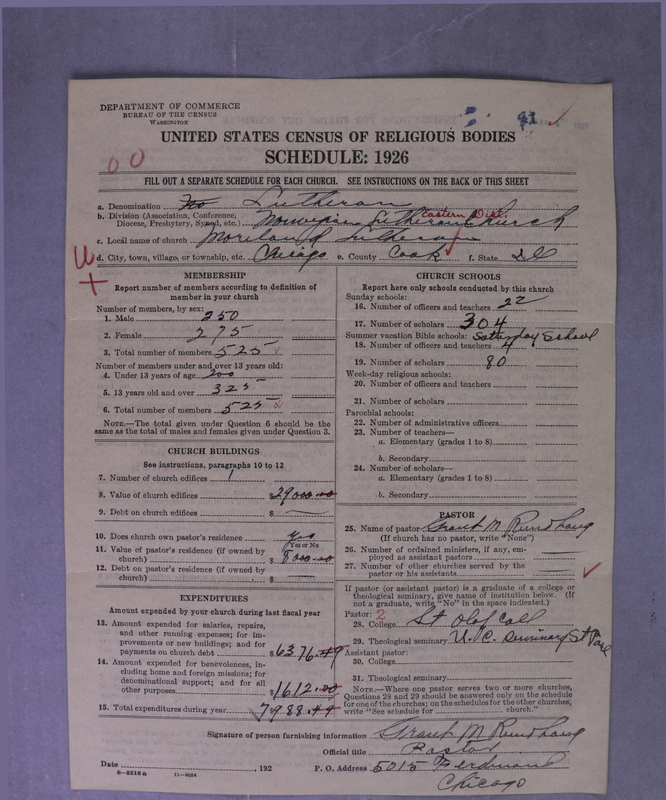 DEPARTMENT OF COMMERCE
BUREAU OF THE CENSUS
WASHINGTON
41 ✓
UNITED STATES CENSUS OF RELIGIOUS BODIES
SCHEDULE: 1926
00
FILL OUT A SEPARATE SCHEDULE FOR EACH CHURCH. SEE INSTRUCTIONS ON THE BACK OF THIS SHEET
a. Denomination Lutheran
b. Division (Association, Conference, Diocese, Presbytery, Synod, etc.) Norwegian Lutheran Church Eastern Dist.
c. Local name of church Moreland Lutheran
d. City, town, village, or township, etc. Chicago e. County Cook f. State Ill
MEMBERSHIP
Report number of members according to definition of
member in your church
Number of members, by sex:
1. Male 250
2. Female 275
3. Total number of members 525
Number of members under and over 13 years old:
4. Under 13 years of age 200
5. 13 years old and over 325
6. Total number of members 525
NOTE.—The total given under Question 6 should be the
same as the total of males and females given under Question 3.
CHURCH BUILDINGS
See instructions, paragraphs 10 to 12
7. Number of church edifices 1
8. Value of church edifices $29000.00
9. Debt on church edifices $
10. Does church own pastor's residence yes
Yes or No
11. Value of pastor's residence (if owned by
church) $8000.00
12. Debt on pastor's residence (if owned by
church) $
EXPENDITURES
Amount expended by your church during last fiscal year
13. Amount expended for salaries, repairs,
and other running expenses; for im-
provements or new buildings; and for
payments on church debt $6376.49
14. Amount expended for benevolences, in-
cluding home and foreign missions; for
denominational support; and for all
other purposes $1612.00
15. Total expenditures during year 7988.49
CHURCH SCHOOLS
Report here only schools conducted by this church
Sunday schools:
16. Number of officers and teachers 22
17. Number of scholars 304
Summer vacation Bible schools: Saturday School
18. Number of officers and teachers 4
19. Number of scholars 80
Week-day religious schools:
20. Number of officers and teachers
21. Number of scholars
Parochial schools:
22. Number of administrative officers
23. Number of teachers—
a. Elementary (grades 1 to 8)
b. Secondary
24. Number of scholars—
a. Elementary (grades 1 to 8)
b. Secondary
PASTOR
25. Name of pastor Grant M. Rundhaug
(If church has no pastor, write "None")
26. Number of ordained ministers, if any, em-
ployed as assistant pastors
27. Number of other churches served by the
pastor or his assistants
If pastor (or assistant pastor) is a graduate of a college or
theological seminary, give name of institution below. (If
not a graduate, write "No" in the space indicated.)
Pastor: 2
28. College St Olaf Coll
29. Theological seminary U.C. Seminary St Paul
Assistant pastor:
30. College
31. Theological seminary
NOTE.—Where one pastor serves two or more churches,
Questions 28 and 29 should be answered only on the schedule
for one of the churches; on the schedules for the other churches,
write "See schedule for church."
Signature of person furnishing information Grant M. Rundhaug
Official title Pastor
Date , 192 P. O. Address 5015 Ferdinand
Chicago
8—5518a 11—9034